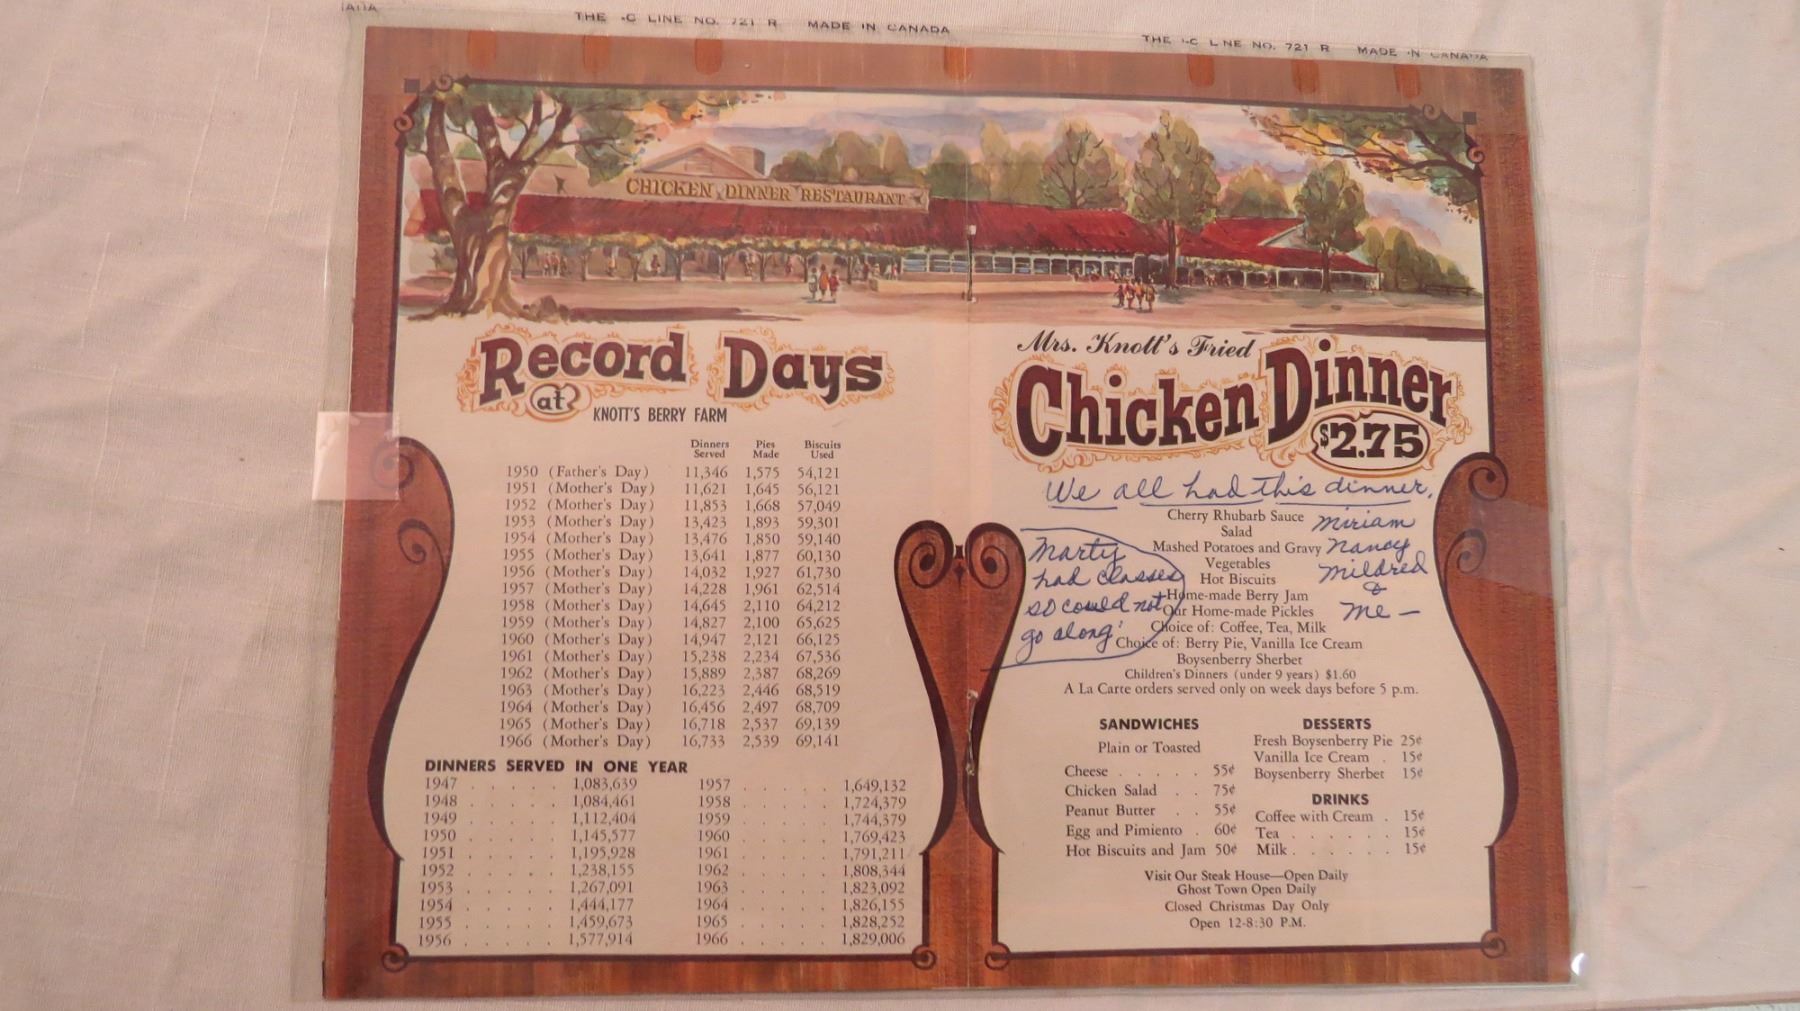 THE C LINE NO. 721 R MADE IN CANADA
THE C LINE NO. 721 R MADE IN CANADA
CHICKEN DINNER RESTAURANT
Record Days
at
KNOTT'S BERRY FARM
Dinners Served Pies Made Biscuits Used
1950 (Father's Day) 11,346 1,575 54,121
1951 (Mother's Day) 11,621 1,645 56,121
1952 (Mother's Day) 11,853 1,668 57,049
1953 (Mother's Day) 13,423 1,893 59,301
1954 (Mother's Day) 13,476 1,850 59,140
1955 (Mother's Day) 13,641 1,877 60,130
1956 (Mother's Day) 14,032 1,927 61,730
1957 (Mother's Day) 14,228 1,961 62,514
1958 (Mother's Day) 14,645 2,110 64,212
1959 (Mother's Day) 14,827 2,100 65,625
1960 (Mother's Day) 14,947 2,121 66,125
1961 (Mother's Day) 15,238 2,234 67,536
1962 (Mother's Day) 15,889 2,387 68,269
1963 (Mother's Day) 16,223 2,446 68,519
1964 (Mother's Day) 16,456 2,497 68,709
1965 (Mother's Day) 16,718 2,537 69,139
1966 (Mother's Day) 16,733 2,539 69,141
DINNERS SERVED IN ONE YEAR
1947 . . . . . 1,083,639
1948 . . . . . 1,084,461
1949 . . . . . 1,112,404
1950 . . . . . 1,145,577
1951 . . . . . 1,195,928
1952 . . . . . 1,238,155
1953 . . . . . 1,267,091
1954 . . . . . 1,444,177
1955 . . . . . 1,459,673
1956 . . . . . 1,577,914
1957 . . . . . 1,649,132
1958 . . . . . 1,724,379
1959 . . . . . 1,744,379
1960 . . . . . 1,769,423
1961 . . . . . 1,791,211
1962 . . . . . 1,808,344
1963 . . . . . 1,823,092
1964 . . . . . 1,826,155
1965 . . . . . 1,828,252
1966 . . . . . 1,829,006
Mrs. Knott's Fried
Chicken Dinner
$2.75
We all had this dinner.
Miriam
Nancy
Mildred
&
Me —
Marty
had classes
so could not
go along!
Cherry Rhubarb Sauce
Salad
Mashed Potatoes and Gravy
Vegetables
Hot Biscuits
Home-made Berry Jam
Our Home-made Pickles
Choice of: Coffee, Tea, Milk
Choice of: Berry Pie, Vanilla Ice Cream
Boysenberry Sherbet
Children's Dinners (under 9 years) $1.60
A La Carte orders served only on week days before 5 p.m.
SANDWICHES
Plain or Toasted
Cheese . . . . . 55¢
Chicken Salad . . 75¢
Peanut Butter . . 55¢
Egg and Pimiento . 60¢
Hot Biscuits and Jam 50¢
DESSERTS
Fresh Boysenberry Pie 25¢
Vanilla Ice Cream . 15¢
Boysenberry Sherbet 15¢
DRINKS
Coffee with Cream . 15¢
Tea . . . . . . 15¢
Milk . . . . . . 15¢
Visit Our Steak House—Open Daily
Ghost Town Open Daily
Closed Christmas Day Only
Open 12-8:30 P.M.